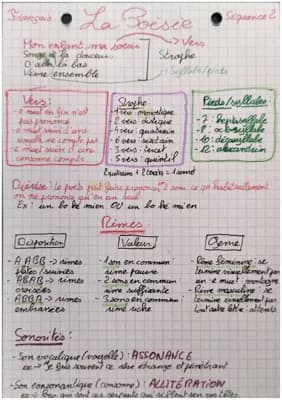 Français
La Poésie
Séquence 2
Mon enfant, ma sœur → Vers
Songe à la douceur
D'aller là bas
Vivre ensemble
Strophe
Syllabe/pieds
Vers:
- e muet en fin n'est
pas prononcé
- e muet suivi d'une
voyelle ne compte pas
- e muet suivi d'une
consonne compte
Strophe
1 vers: monostique
2 vers: distique
4 vers: quatrain
6 vers: sixtain
3 vers: tercet
5 vers: quintil
2 quatrains + 2 tercets = 1 sonnet
Pieds/syllabes:
- 7: heptasyllabe
- 8: octosyllabe
- 10: décasyllabe
- 12: alexandrin
Diérèse: le poète peut faire prononcer 2 sons ce qu'habituellement
on ne prononce qu'en un seul
Ex: un bo hé mien OU un bo hé mi en
Rimes
Disposition
- AABB → rimes
plates/suivies
- ABAB → rimes
croisées
- ABBA → rimes
embrassées
Valeur
- 1 son en commun:
rime pauvre
- 2 sons en commun:
rime suffisante
- 3 sons en commun:
rime riche
Genre
- Rime féminine: se
termine visuellement par
un "e" muet
- Rime masculine: se
termine visuellement par
tout autre lettre
Sonorités:
- Son vocalique (voyelle): ASSONANCE
ex → Je fais souvent ce rêve étrange et pénétrant
- Son consonantique (consonne): ALLITÉRATION
ex → Pour qui sont ces serpents qui sifflent sur vos têtes